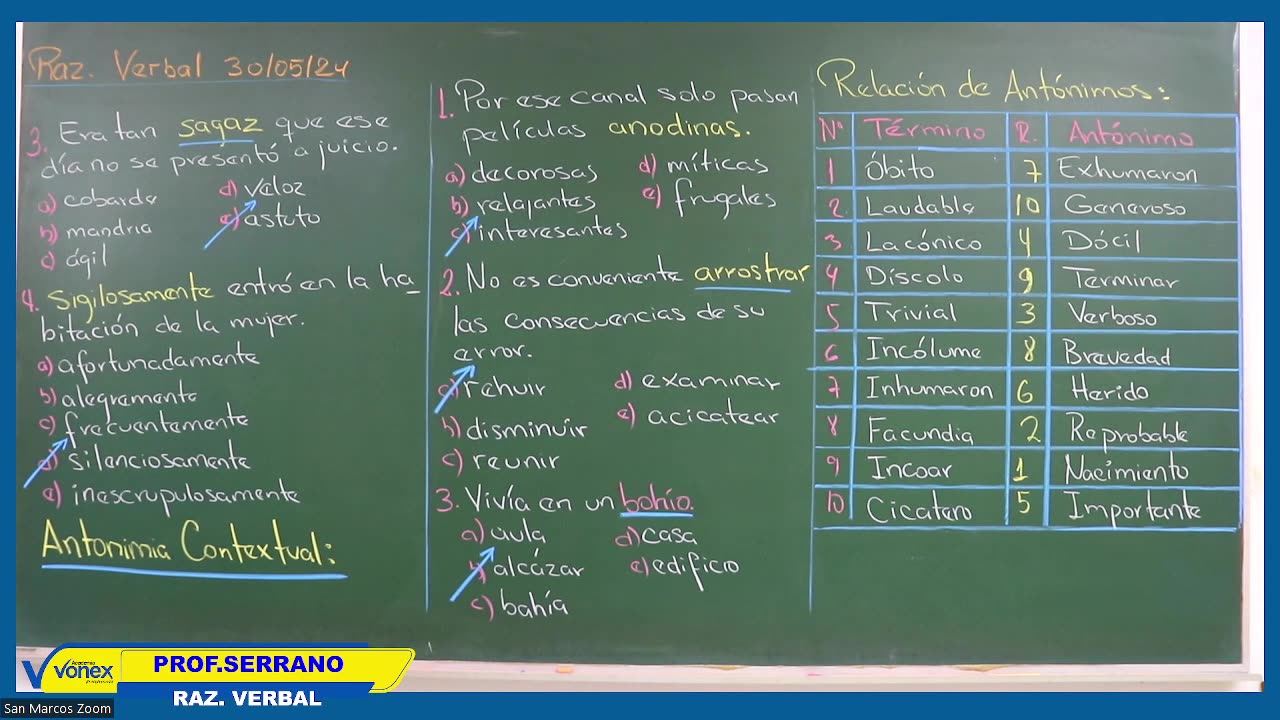 Raz. Verbal 30/05/24
3. Era tan sagaz que ese
día no se presentó a juicio.
a) cobarde
b) mandria
c) ágil
d) veloz
e) astuto
4. Sigilosamente entró en la ha
bitación de la mujer.
a) afortunadamente
b) alegremente
c) frecuentemente
d) silenciosamente
e) inescrupulosamente
Antonimia Contextual:
1. Por ese canal solo pasan
películas anodinas.
a) decorosas
b) relajantes
c) interesantes
d) míticas
e) frugales
2. No es conveniente arrostrar
las consecuencias de su
error.
a) rehuir
b) disminuir
c) reunir
d) examinar
e) acicatear
3. Vivía en un bohío.
a) aula
b) alcázar
c) bahía
d) casa
e) edificio
Relación de Antónimos:
N° Término R. Antónimo
1 Óbito 7 Exhumaron
2 Laudable 10 Generoso
3 Lacónico 4 Dócil
4 Díscolo 9 Terminar
5 Trivial 3 Verboso
6 Incólume 8 Brevedad
7 Inhumaron 6 Herido
8 Facundia 2 Reprobable
9 Incoar 1 Nacimiento
10 Cicatero 5 Importante
Academia
VONEX
PROF.SERRANO
RAZ. VERBAL
San Marcos Zoom